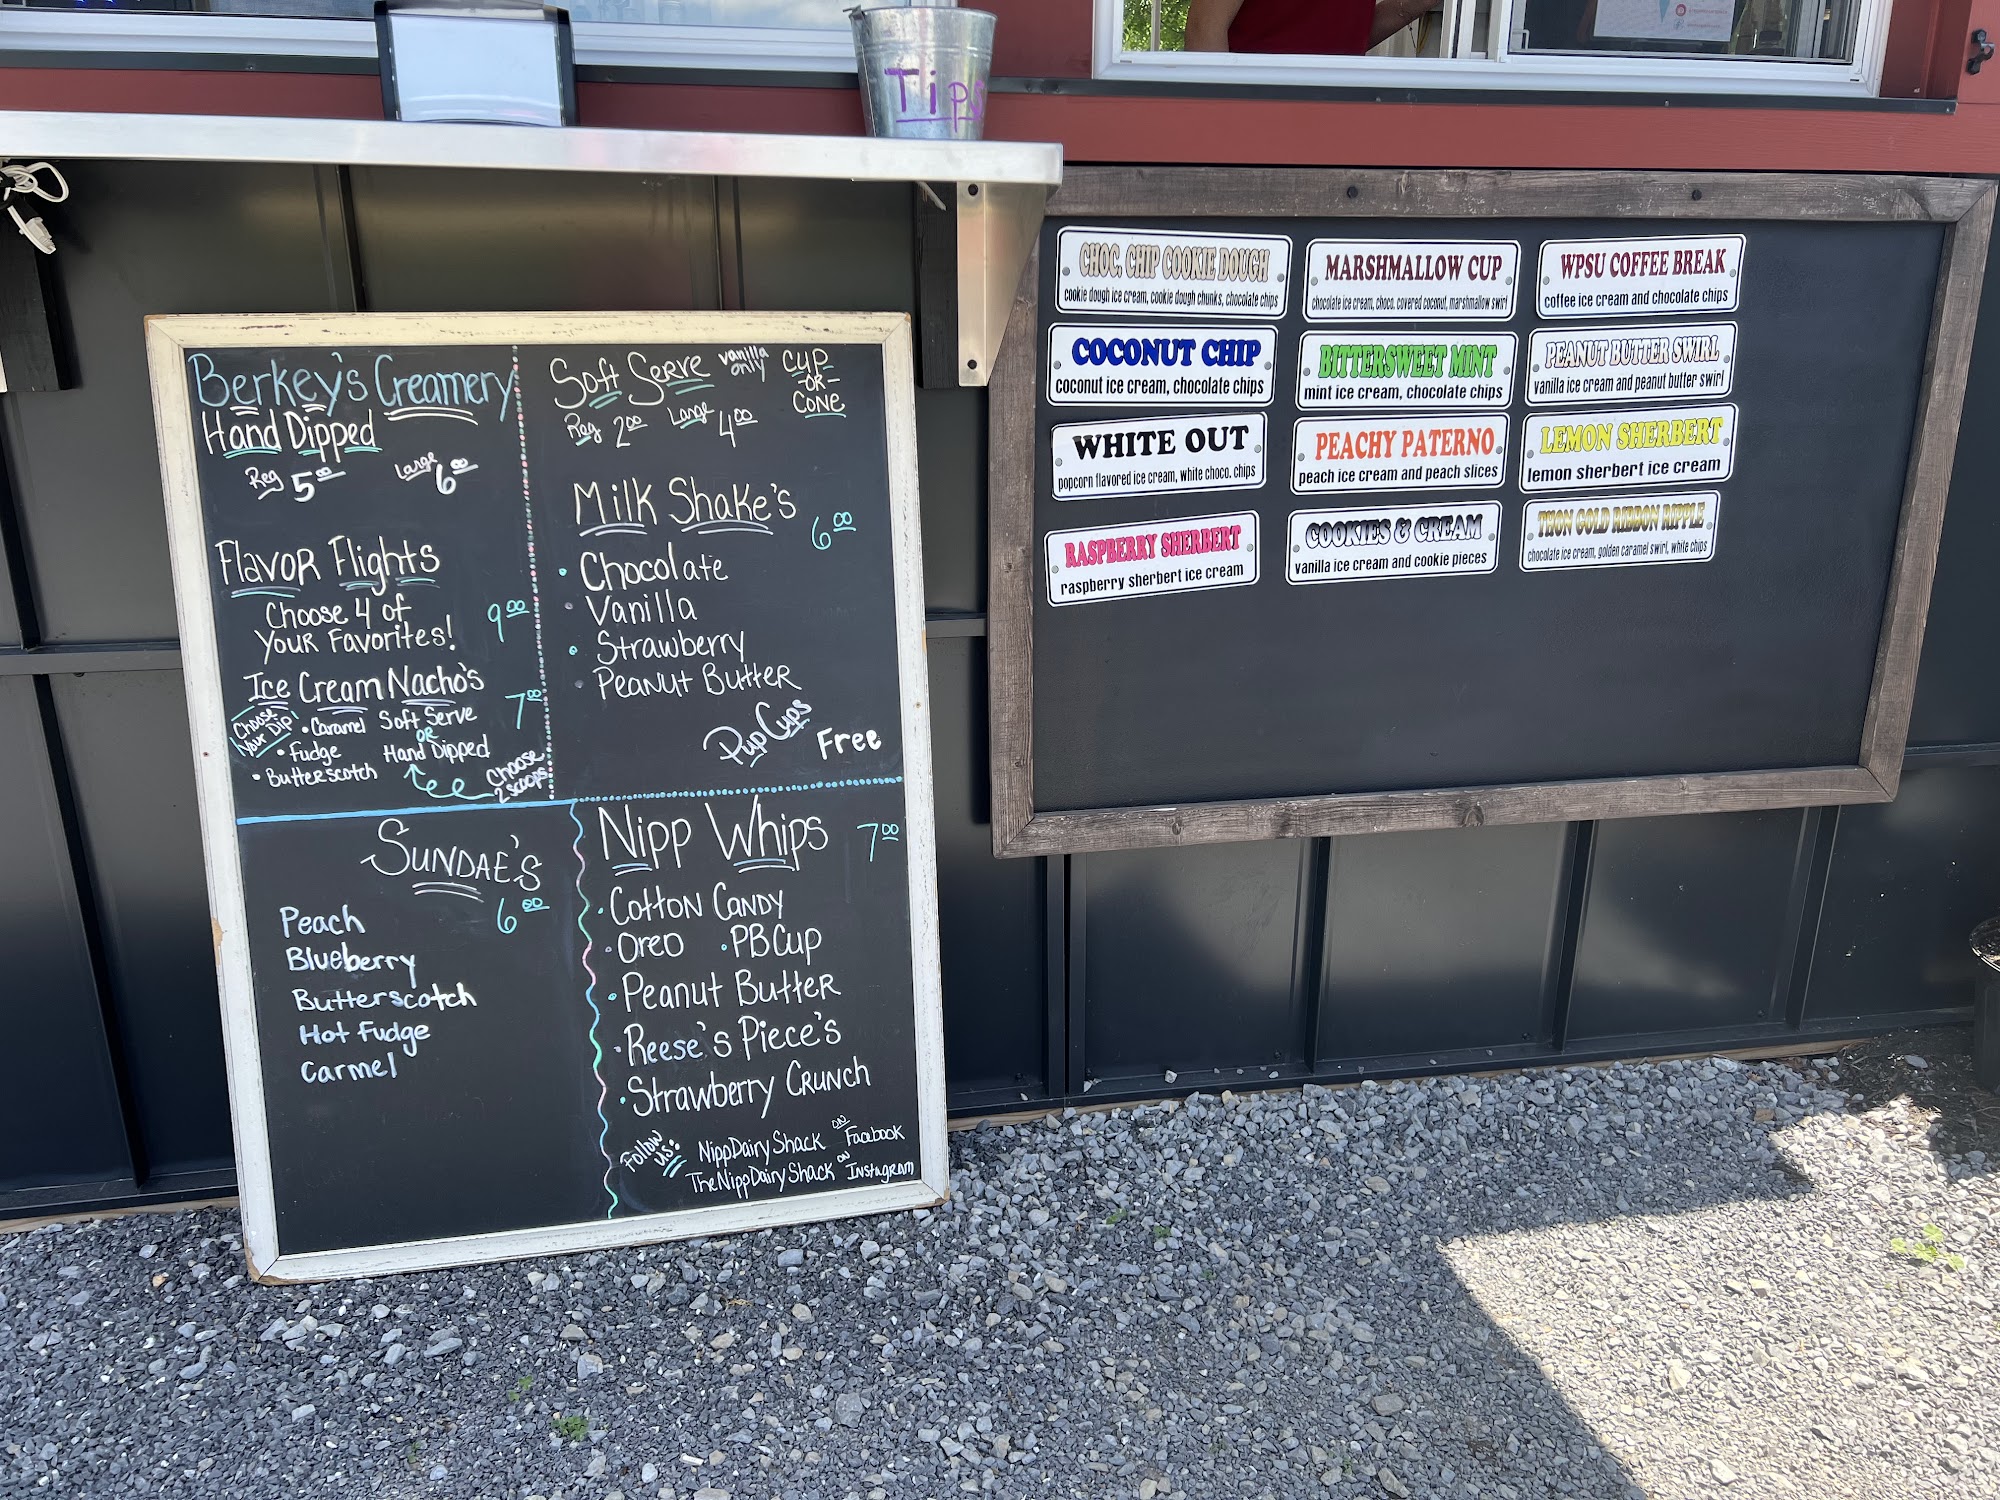 Tips
Berkey's Creamery
Hand Dipped
Reg 5.00 Large 6.00
Flavor Flights
Choose 4 of
Your Favorites! 9.00
Ice Cream Nacho's 7.00
Choose Your Dip
• Caramel
• Fudge
• Butterscotch
Soft Serve
OR
Hand Dipped
Choose
2 scoops
Soft Serve vanilla only
Cup
-OR-
Cone
Reg 2.00 Large 4.00
Milk Shake's 6.00
• Chocolate
• Vanilla
• Strawberry
• Peanut Butter
Pup Cups Free
Sundae's
6.00
Peach
Blueberry
Butterscotch
Hot Fudge
Carmel
Nipp Whips 7.00
• Cotton Candy
• Oreo • PB Cup
• Peanut Butter
• Reese's Piece's
• Strawberry Crunch
Follow us:
NippDairyShack on Facebook
TheNippDairyShack on Instagram
CHOC. CHIP COOKIE DOUGH
cookie dough ice cream, cookie dough chunks, chocolate chips
MARSHMALLOW CUP
chocolate ice cream, choco. covered coconut, marshmallow swirl
WPSU COFFEE BREAK
coffee ice cream and chocolate chips
COCONUT CHIP
coconut ice cream, chocolate chips
BITTERSWEET MINT
mint ice cream, chocolate chips
PEANUT BUTTER SWIRL
vanilla ice cream and peanut butter swirl
WHITE OUT
popcorn flavored ice cream, white choco. chips
PEACHY PATERNO
peach ice cream and peach slices
LEMON SHERBERT
lemon sherbert ice cream
RASPBERRY SHERBERT
raspberry sherbert ice cream
COOKIES & CREAM
vanilla ice cream and cookie pieces
THON GOLD RIBBON RIPPLE
chocolate ice cream, golden caramel swirl, white chips